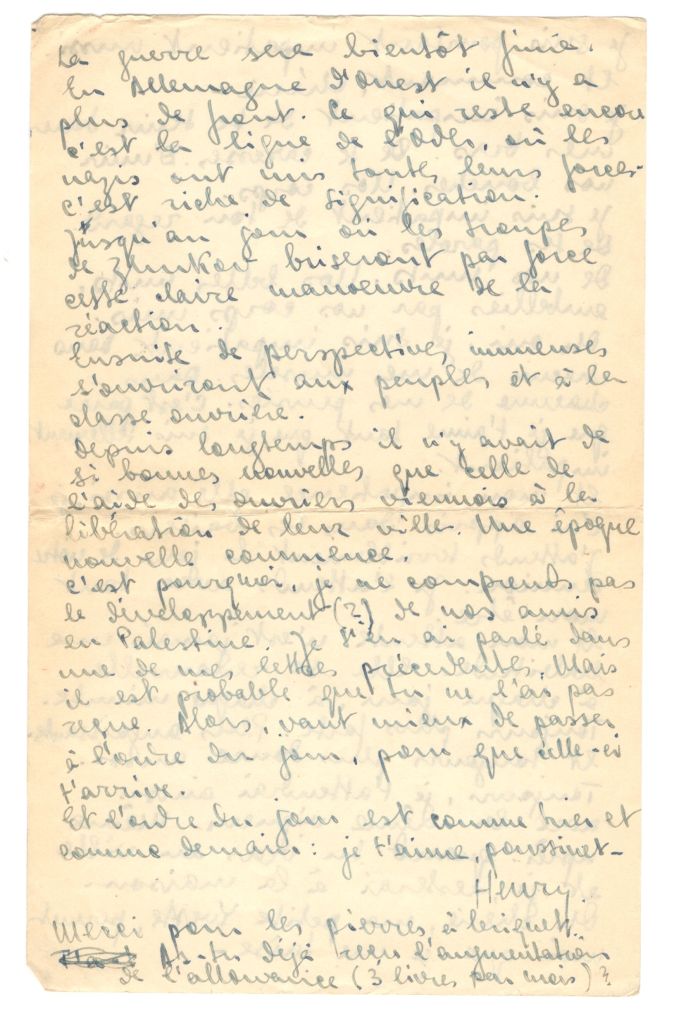 La guerre sera bientôt finie.
En Allemagne d'Ouest il n'y a
plus de front. Ce qui reste encore
c'est la ligne de l'Oder, où les
nazis ont mis toutes leurs forces.
c'est riche de signification.
Jusqu'au jour où les troupes
de Zhukov briseront par force
cette claire manoeuvre de la
réaction.
Ensuite de perspectives immenses
s'ouvriront aux peuples et à la
classe ouvrière.
Depuis longtemps il n'y avait de
si bonnes nouvelles que celle de
l'aide des ouvriers viennois à la
libération de leur ville. Une époque
nouvelle commence.
C'est pourquoi, je ne comprends pas
le développement (?) de nos amis
en Palestine. Je t'en ai parlé dans
une de mes lettres précedentes. Mais
il est probable que tu ne l'ai pas
reçue. Alors, vaut mieux de passer
à l'ordre du jour, pour que celle-ci
t'arrive.
Et l'ordre du jour est comme hier et
comme demain: je t'aime, poussinet-
Henry.
Merci pour les pierres à briquet.
As-tu déjà reçu l'augmentation
de l'allowance (3 livres par mois)?